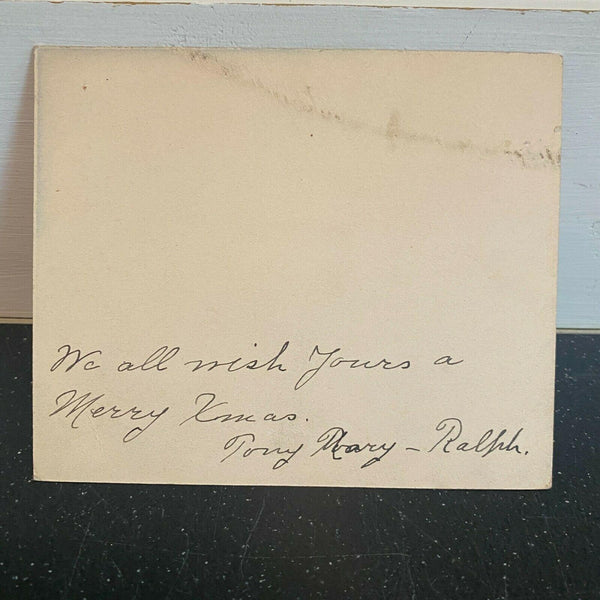 We all wish Yours a
Merry Xmas.
Tony Mary - Ralph.